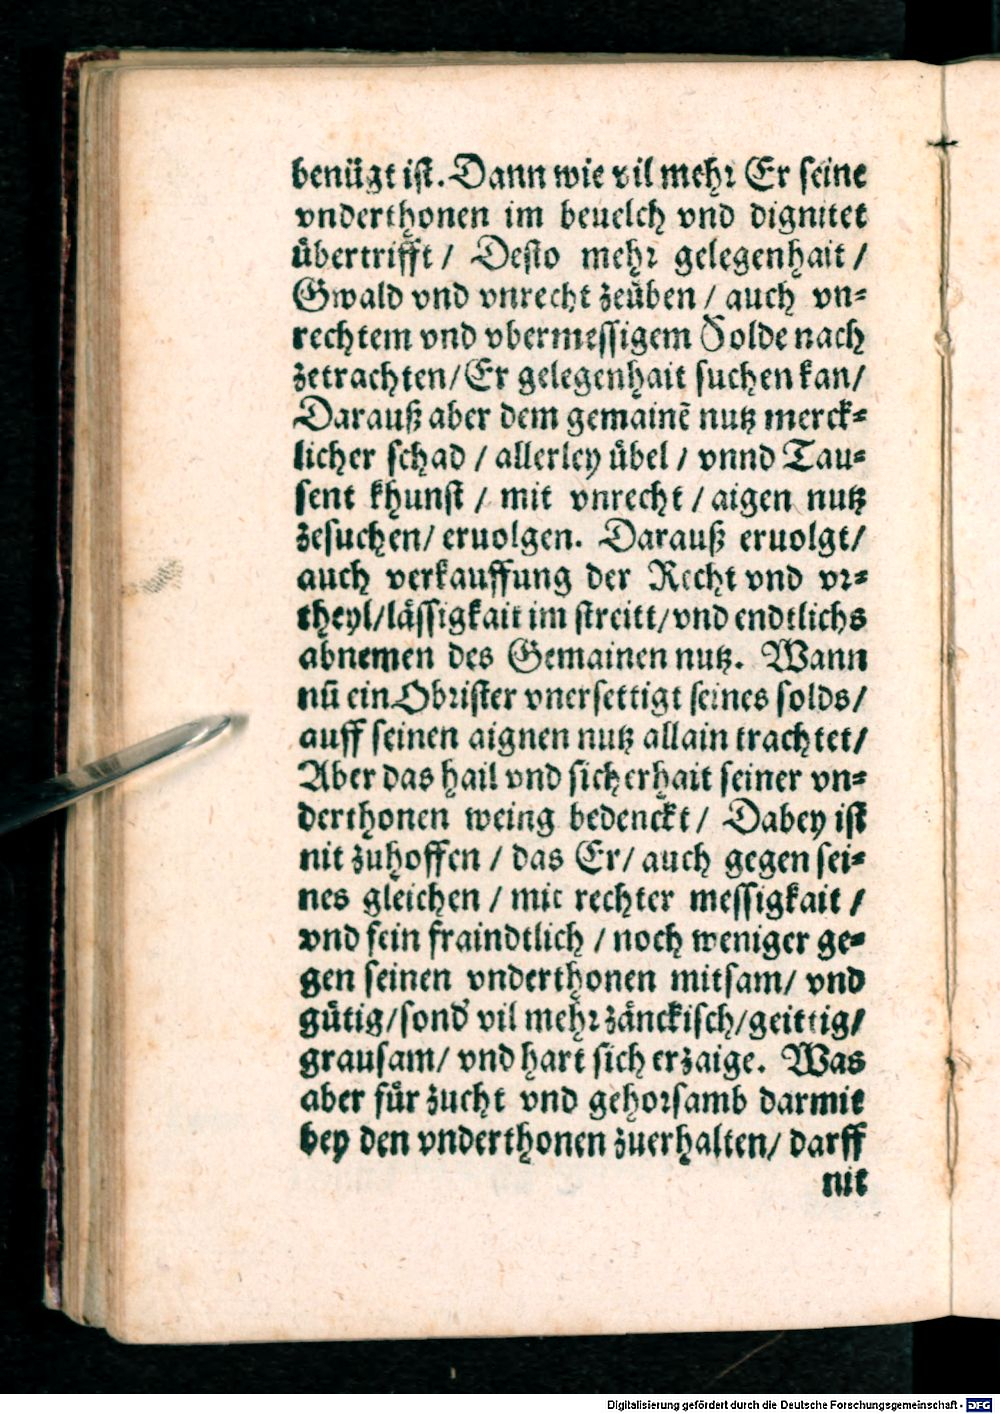 benügt ist. Dann wie vil mehr Er seine
vnderthonen im beuelch vnd dignitet
übertrifft / Desto mehr gelegenhait /
Gwald vnd vnrecht zeüben / auch vn-
rechtem vnd vbermessigem Solde nach
zetrachten / Er gelegenhait suchen kan /
Darauß aber dem gemainē nutz merck-
licher schad / allerley übel / vnnd Tau-
sent khunst / mit vnrecht / aigen nutz
zesuchen / eruolgen. Darauß eruolgt /
auch verkauffung der Recht vnd vr-
theyl / lässigkait im streitt / vnd endtlichs
abnemen des Gemainen nutz. Wann
nū ein Obrister vnersettigt seines solds /
auff seinen aignen nutz allain trachtet /
Aber das hail vnd sicherhait seiner vn-
derthonen weing bedenckt / Dabey ist
nit zuhoffen / das Er / auch gegen sei-
nes gleichen / mit rechter messigkait /
vnd fein fraindtlich / noch weniger ge-
gen seinen vnderthonen mitsam / vnd
gütig / sond' vil mehr zänckisch / geittig /
grausam / vnd hart sich erzaige. Was
aber für zucht vnd gehorsamb darmit
bey den vnderthonen zuerhalten / darff
nit
Digitalisierung gefördert durch die Deutsche Forschungsgemeinschaft - DFG